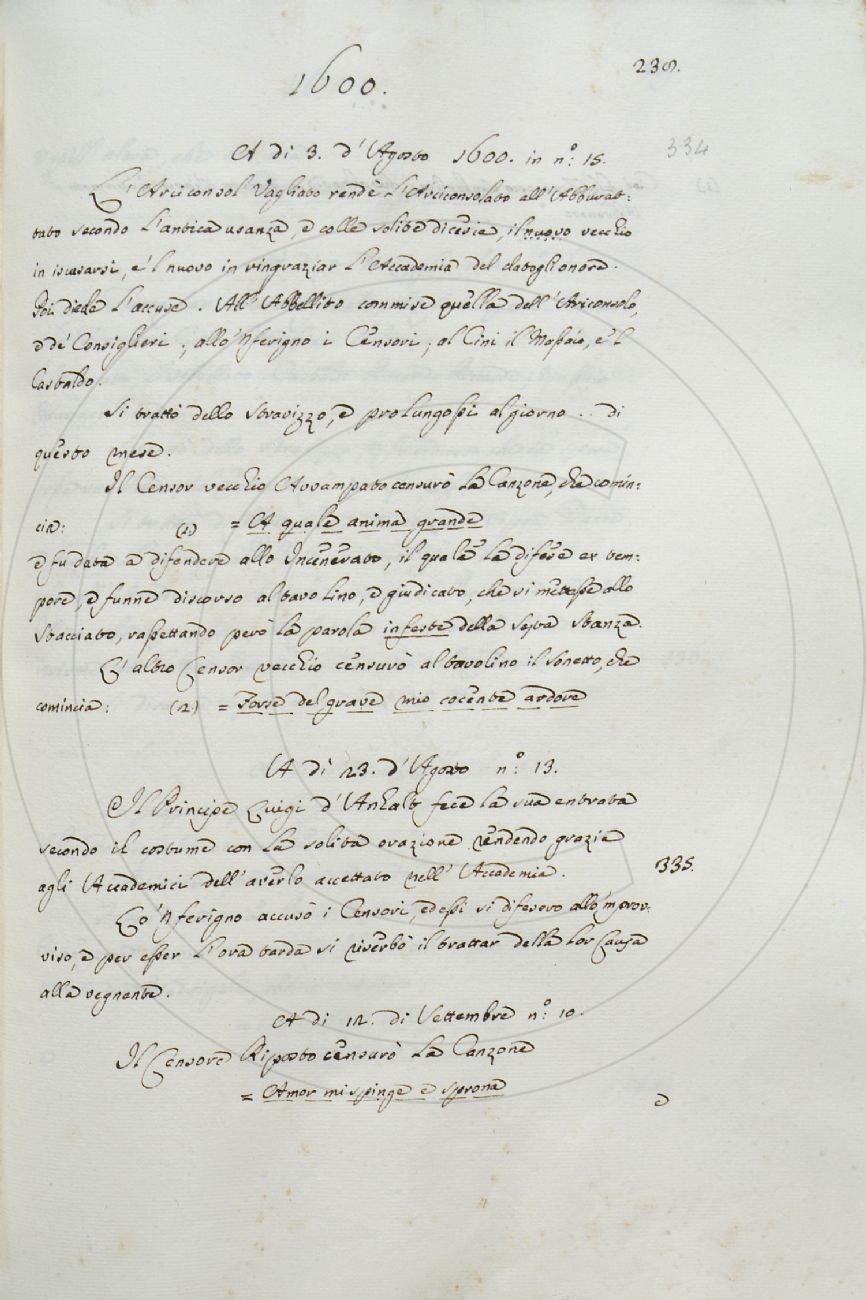 1600.
239.
A di 3. d'Agosto 1600. in n.º: 15.
334
L'Arciconsol Vagliato rendè l'Arciconsolato all'Abburat-
tato secondo l'antica usanza, e colle solite dicerie, il nuovo vecchio
in iscusarsi, e 'l nuovo in ringraziar l'Accademia del datogli onore.
Poi diede l'accuse. All'Abbellito commise quella dell'Arciconsolo,
e de' Consiglieri; allo 'Nferigno i Censori; al Cini il Massaio, e 'l
Castaldo.
Si trattò dello stravizzo, e prolungossi al giorno .. di
questo mese.
Il Censor vecchio Avvampato censurò la Canzone, che comin-
cia: (1.) = A quale anima grande
e fu data a difendere allo Incenerato, il quale la difese ex tem-
pore, e funne discorso al tavolino, e giudicato, che si mettesse allo
stacciato, rassettando però la parola infeste della sesta stanza.
L'altro Censor vecchio censurò al tavolino il sonetto, che
comincia: (2.) = Forse del grave mio cocente ardore
A di 23. d'Agosto n.º: 13.
Il Principe Luigi d'Anhalt fece la sua entrata
secondo il costume con la solita orazione rendendo grazie
agli Accademici dell'averlo accettato nell'Accademia.
335.
Lo 'Nferigno accusò i Censori, ed essi si difesero allo 'mprov-
viso, e per esser l'ora tarda si riserbò il trattar della lor causa
alla vegnente.
A di 12. di Settembre n.º: 10.
Il Censore Riposto censurò la Canzone
= Amor mi spinge e sprona
e